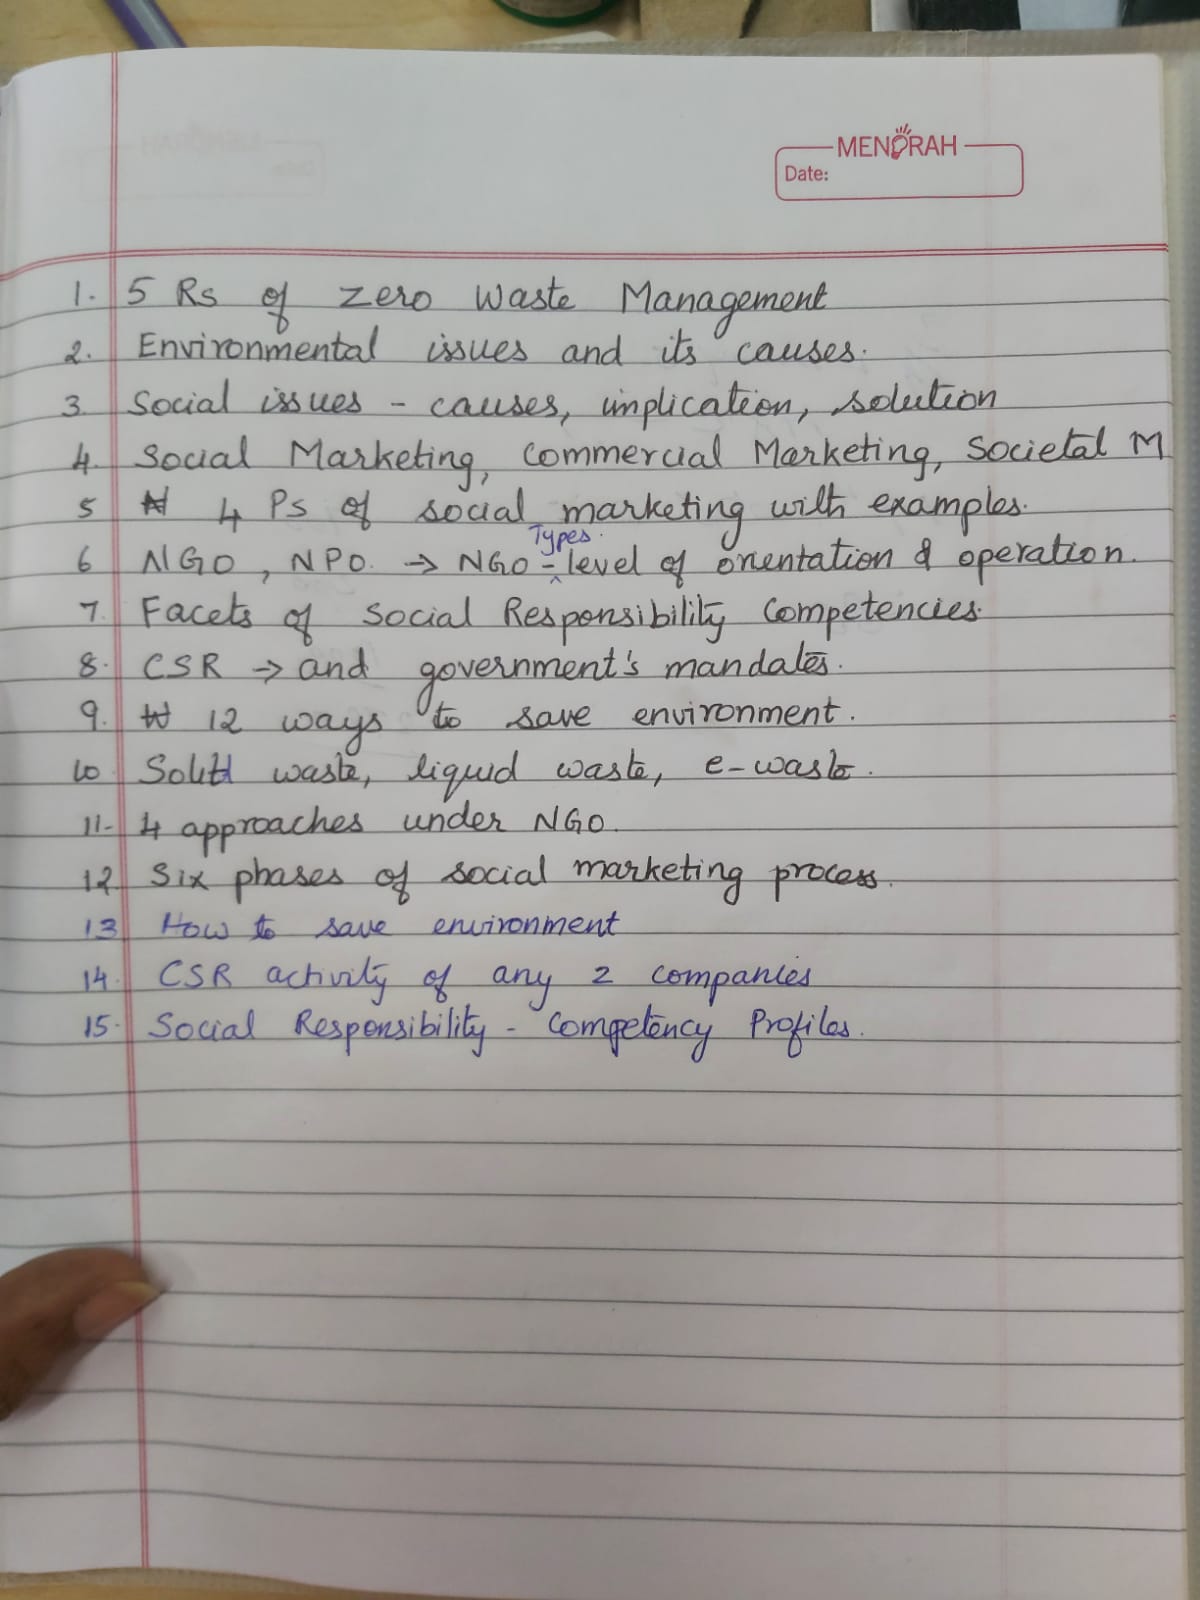 MENORAH
Date:
1. 5 Rs of Zero Waste Management
2. Environmental issues and its causes.
3. Social issues - causes, implication, solution
4. Social Marketing, Commercial Marketing, Societal M
5 4 Ps of social marketing with examples.
Types
6 NGO, NPO. → NGO - level of orientation & operation.
7. Facets of Social Responsibility Competencies.
8. CSR → and government's mandates.
9. 12 ways to save environment.
10. Solid waste, liquid waste, e-waste.
11- 4 approaches under NGO.
12. Six phases of social marketing process.
13. How to save environment
14. CSR activity of any 2 companies
15. Social Responsibility - Competency Profiles.